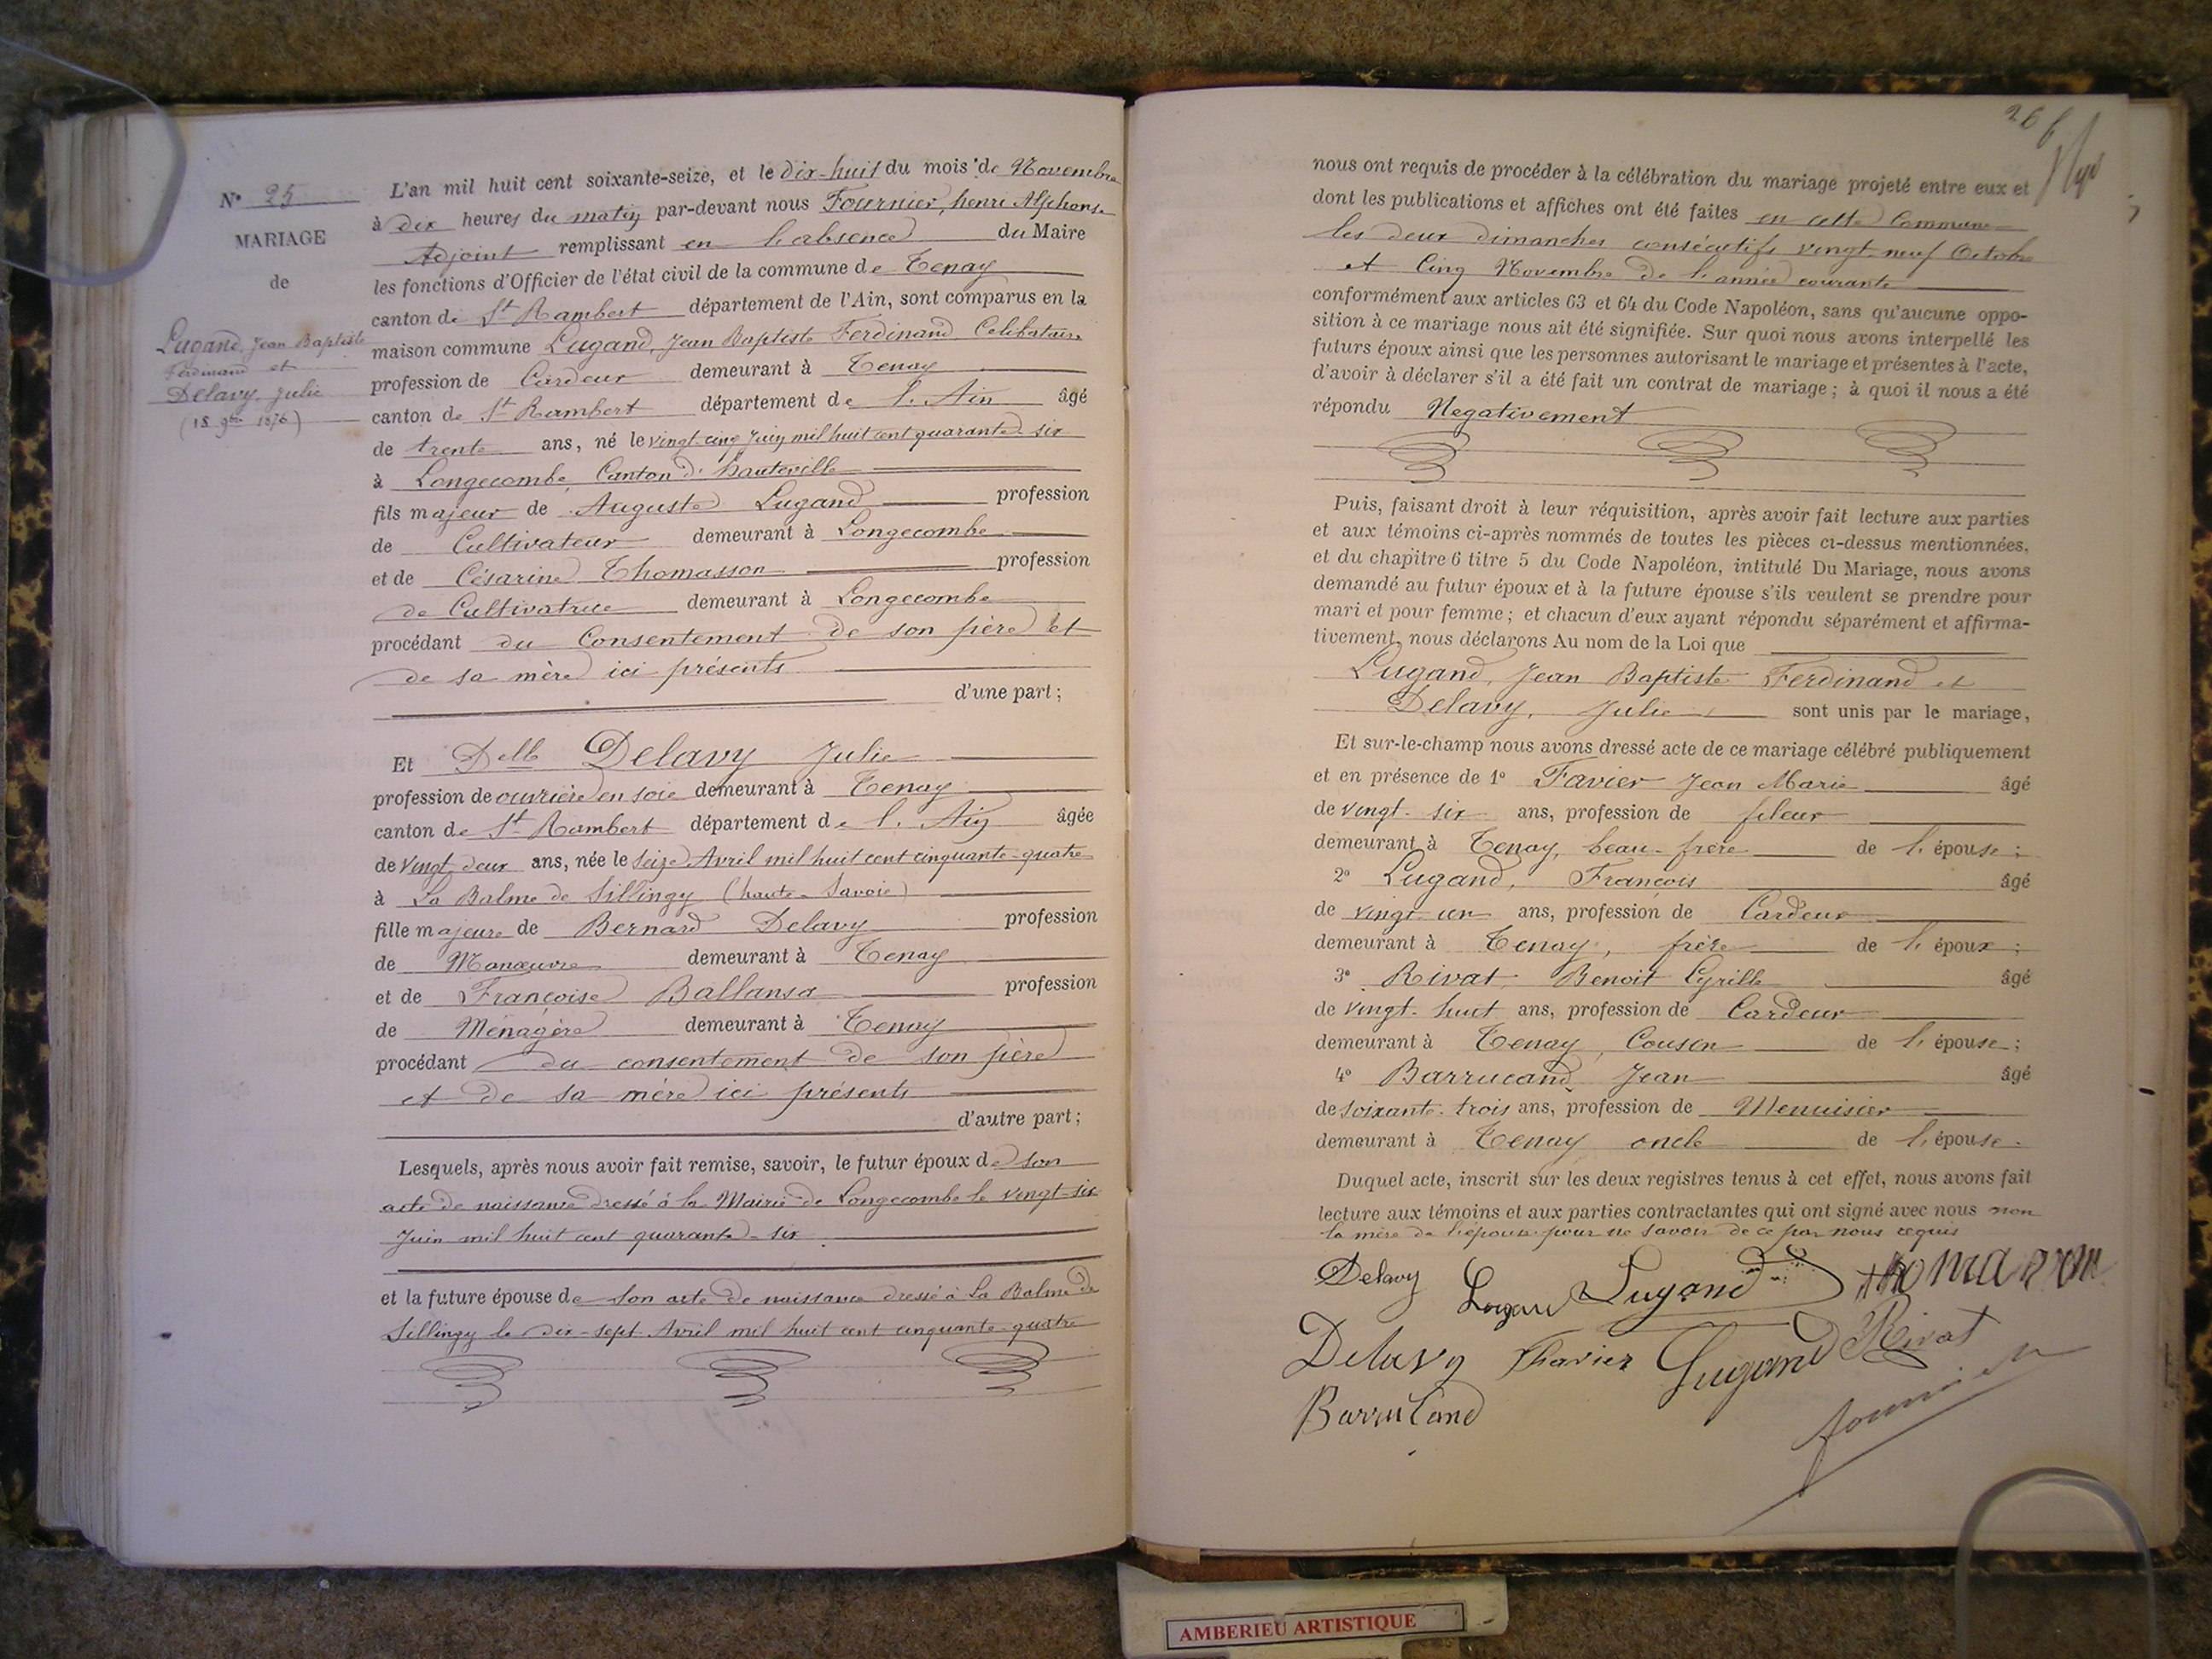 N° 25
MARIAGE
de
Lugand, Jean Baptiste
Ferdinand et
Delavy, Julie
(18 9bre 1876)
L'an mil huit cent soixante-seize, et le dix-huit du mois de Novembre
à dix heures du matin par-devant nous Fournier, henri Alphonse
Adjoint remplissant en l'absence du Maire
les fonctions d'Officier de l'état civil de la commune de Tenay
canton de St Rambert département de l'Ain, sont comparus en la
maison commune Lugand, Jean Baptiste Ferdinand Celibataire
profession de Cardeur demeurant à Tenay
canton de St Rambert département de l'Ain âgé
de trente ans, né le vingt cinq Juin mil huit cent quarante-six
à Longecombe, Canton d'hauteville
fils majeur de Auguste Lugand profession
de Cultivateur demeurant à Longecombe
et de Césarine Thomasson profession
de Cultivatrice demeurant à Longecombe
procédant du Consentement de son père et
de sa mère ici présents
d'une part;
Et Delle Delavy Julie
profession de ouvrière en soie demeurant à Tenay
canton de St Rambert département de l'Ain âgée
de vingt deux ans, née le seize Avril mil huit cent cinquante-quatre
à La Balme de Sillingy (haute-Savoie)
fille majeure de Bernard Delavy profession
de Manœuvre demeurant à Tenay
et de Françoise Ballansa profession
de Ménagère demeurant à Tenay
procédant du consentement de son père
et de sa mère ici présents
d'autre part;
Lesquels, après nous avoir fait remise, savoir, le futur époux de son
acte de naissance dressé à la Mairie de Longecombe le vingt-six
Juin mil huit cent quarante-six
et la future épouse de son acte de naissance dressé à La Balme de
Sillingy le dix-sept Avril mil huit cent cinquante-quatre
26
nous ont requis de procéder à la célébration du mariage projeté entre eux et
dont les publications et affiches ont été faites en cette Commune
les deux dimanches consécutifs vingt-neuf Octobre
et Cinq Novembre de l'année courante
conformément aux articles 63 et 64 du Code Napoléon, sans qu'aucune oppo-
sition à ce mariage nous ait été signifiée. Sur quoi nous avons interpellé les
futurs époux ainsi que les personnes autorisant le mariage et présentes à l'acte,
d'avoir à déclarer s'il a été fait un contrat de mariage; à quoi il nous a été
répondu Negativement
Puis, faisant droit à leur réquisition, après avoir fait lecture aux parties
et aux témoins ci-après nommés de toutes les pièces ci-dessus mentionnées,
et du chapitre 6 titre 5 du Code Napoléon, intitulé Du Mariage, nous avons
demandé au futur époux et à la future épouse s'ils veulent se prendre pour
mari et pour femme; et chacun d'eux ayant répondu séparément et affirma-
tivement, nous déclarons Au nom de la Loi que
Lugand, Jean Baptiste Ferdinand et
Delavy, Julie sont unis par le mariage,
Et sur-le-champ nous avons dressé acte de ce mariage célébré publiquement
et en présence de 1° Favier Jean Marie âgé
de vingt-six ans, profession de fileur
demeurant à Tenay, beau-frère de l'épouse;
2° Lugand, François âgé
de vingt-un ans, profession de Cardeur
demeurant à Tenay, frère de l'époux;
3° Rivat Benoit Cyrille âgé
de vingt-huit ans, profession de Cardeur
demeurant à Tenay, Cousin de l'épouse;
4° Barrucand Jean âgé
de soixante-trois ans, profession de Menuisier
demeurant à Tenay oncle de l'épouse.
Duquel acte, inscrit sur les deux registres tenus à cet effet, nous avons fait
lecture aux témoins et aux parties contractantes qui ont signé avec nous non
la mère de l'épouse pour ne savoir de ce par nous requis
Delavy Lugand
Delavy Lugand Rivat
Fournier
AMBERIEU ARTISTIQUE